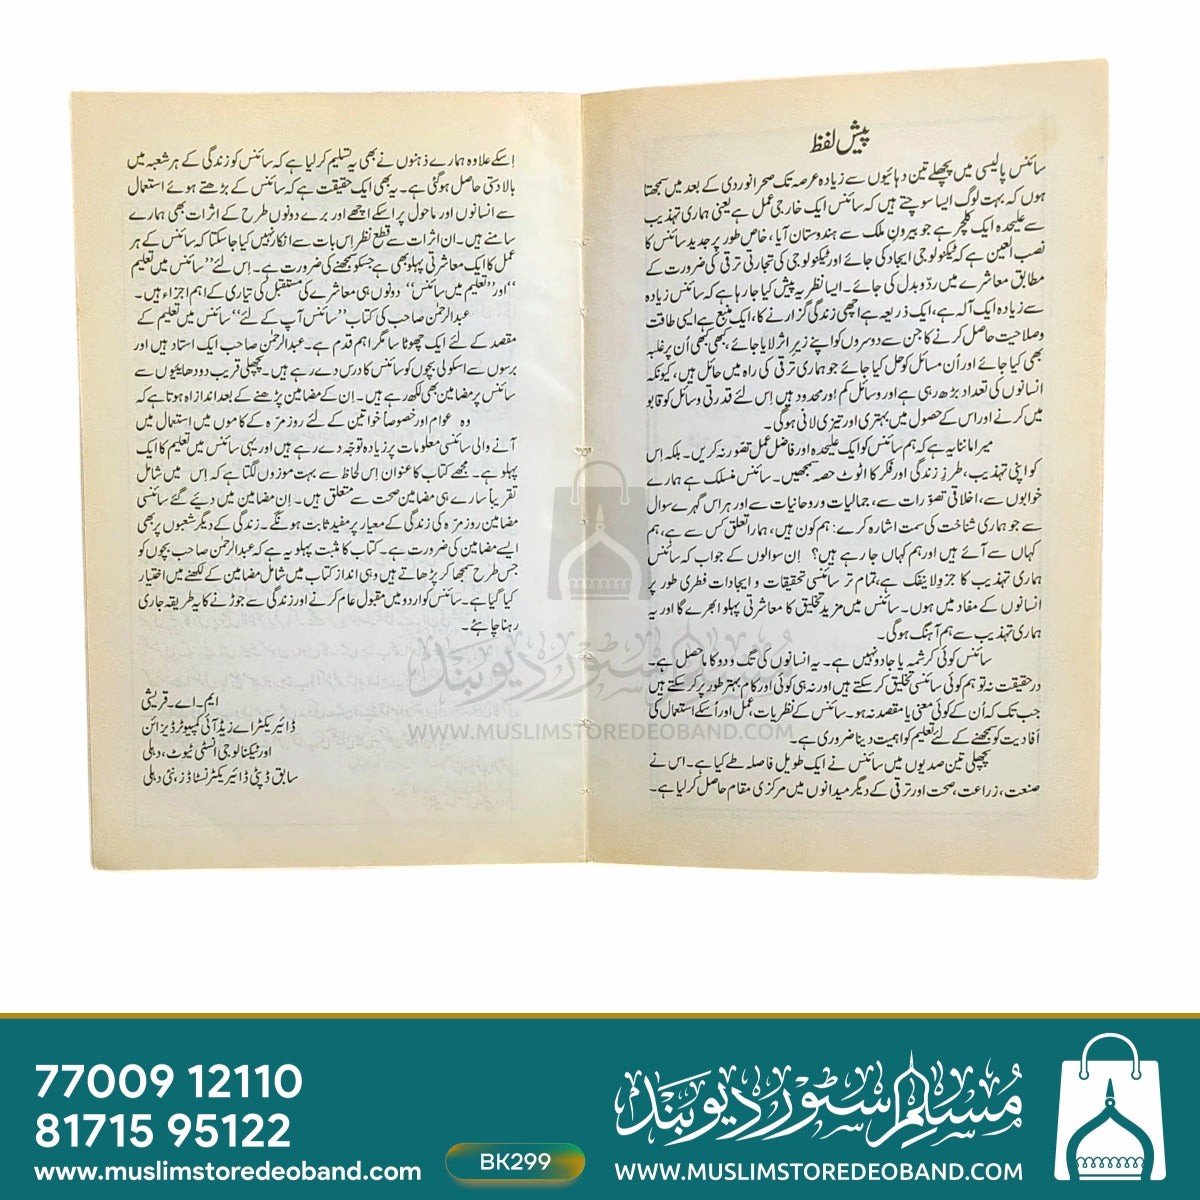 پیش لفظ
سائنس پالیسی میں پچھلے تین دہائیوں سے زیادہ عرصہ تک صحرا نوردی کے بعد میں سمجھتا
ہوں کہ بہت لوگ ایسا سوچتے ہیں کہ سائنس ایک خارجی عمل ہے یعنی ہماری تہذیب
سے علیحدہ ایک کلچر ہے جو بیرونِ ملک سے ہندوستان آیا، خاص طور پر جدید سائنس کا
نصب العین ہے کہ ٹیکنولوجی ایجاد کی جائے اور ٹیکنولوجی کی تجارتی ترقی کی ضرورت کے
مطابق معاشرے میں ردّو بدل کی جائے۔ ایسا نظریہ پیش کیا جا رہا ہے کہ سائنس زیادہ
سے زیادہ ایک آلہ ہے، ایک ذریعہ ہے اچھی زندگی گزارنے کا، ایک منبع ہے ایسی طاقت
و صلاحیت حاصل کرنے کا جن سے دوسروں کو اپنے زیرِ اثر لایا جائے، کبھی کبھی اُن پر غلبہ
بھی کیا جائے اور اُن مسائل کو حل کیا جائے جو ہماری ترقی کی راہ میں حائل ہیں، کیونکہ
انسانوں کی تعداد بڑھ رہی ہے اور وسائل کم اور محدود ہیں اِس لئے قدرتی وسائل کو قابو
میں کرنے اور اس کے حصول میں بہتری اور تیزی لانی ہوگی۔
میرا ماننا یہ ہے کہ ہم سائنس کو ایک علیحدہ اور فاضل عمل تصوّر نہ کریں۔ بلکہ اِس
کو اپنی تہذیب، طرزِ زندگی اور فکر کا اٹوٹ حصہ سمجھیں۔ سائنس منسلک ہے ہمارے
خوابوں سے، اخلاقی تصوّرات سے، جمالیات و روحانیات سے اور ہر اس گہرے سوال
سے جو ہماری شناخت کی سمت اشارہ کرے : ہم کون ہیں، ہمارا تعلق کس سے ہے، ہم
کہاں سے آئے ہیں اور ہم کہاں جا رہے ہیں؟ اِن سوالوں کے جواب کہ سائنس
ہماری تہذیب کا جزو لاینفک ہے، تمام تر سائنسی تحقیقات و ایجادات فطری طور پر
انسانوں کے مفاد میں ہوں۔ سائنس میں مزید تخلیق کا معاشرتی پہلو ابھرے گا اور یہ
ہماری تہذیب سے ہم آہنگ ہوگی۔
سائنس کوئی کرشمہ یا جادو نہیں ہے۔ یہ انسانوں کی تگ و دو کا ماحصل ہے۔
در حقیقت نہ تو ہم کوئی سائنسی تخلیق کر سکتے ہیں اور نہ ہی کوئی اور کام بہتر طور پر کر سکتے ہیں
جب تک کہ اُن کے کوئی معنی یا مقصد نہ ہو۔ سائنس کے نظریات، عمل اور اُسکے استعمال کی
افادیت کو سمجھنے کے لئے تعلیم کو اہمیت دینا ضروری ہے۔
پچھلی تین صدیوں میں سائنس نے ایک طویل فاصلہ طے کیا ہے۔ اس نے
صنعت، زراعت، صحت اور ترقی کے دیگر میدانوں میں مرکزی مقام حاصل کر لیا ہے۔
اِسکے علاوہ ہمارے ذہنوں نے بھی یہ تسلیم کر لیا ہے کہ سائنس کو زندگی کے ہر شعبہ میں
بالا دستی حاصل ہو گئی ہے۔ یہ بھی ایک حقیقت ہے کہ سائنس کے بڑھتے ہوئے استعمال
سے انسانوں اور ماحول پر اسکے اچھے اور برے دونوں طرح کے اثرات بھی ہمارے
سامنے ہیں۔ ان اثرات سے قطع نظر اِس بات سے انکار نہیں کیا جا سکتا کہ سائنس کے ہر
عمل کا ایک معاشرتی پہلو بھی ہے جسکو سمجھنے کی ضرورت ہے۔ اِس لئے "سائنس میں تعلیم
" اور "تعلیم میں سائنس" دونوں ہی معاشرے کی مستقبل کی تیاری کے اہم اجزاء ہیں۔
عبدالرحمٰن صاحب کی کتاب "سائنس آپ کے لئے" سائنس میں تعلیم کے
مقصد کے لئے ایک چھوٹا سا مگر اہم قدم ہے۔ عبدالرحمٰن صاحب ایک استاد ہیں اور
برسوں سے اسکولی بچوں کو سائنس کا درس دے رہے ہیں۔ پچھلی قریب دو دہائیوں سے
سائنس پر مضامین بھی لکھ رہے ہیں۔ اِن کے مضامین پڑھنے کے بعد اندازہ ہوتا ہے کہ
وہ عوام اور خصوصاً خواتین کے لئے روز مرّہ کے کاموں میں استعمال میں
آنے والی سائنسی معلومات پر زیادہ توجّہ دے رہے ہیں اور یہی سائنس میں تعلیم کا ایک
پہلو ہے۔ مجھے کتاب کا عنوان اِس لحاظ سے بہت موزوں لگتا ہے کہ اِس میں شامل
تقریباً سارے ہی مضامین صحت سے متعلق ہیں۔ اِن مضامین میں دئے گئے سائنسی
مضامین روز مرّہ کی زندگی کے معیار پر مفید ثابت ہونگے۔ زندگی کے دیگر شعبوں پر بھی
ایسے مضامین کی ضرورت ہے۔ کتاب کا مثبت پہلو یہ ہے کہ عبدالرحمٰن صاحب بچوں کو
جس طرح سمجھا کر پڑھاتے ہیں وہی انداز کتاب میں شامل مضامین کے لکھنے میں اختیار
کیا گیا ہے۔ سائنس کو اردو میں مقبول عام کرنے اور زندگی سے جوڑنے کا یہ طریقہ جاری
رہنا چاہئے۔
ایم۔اے۔قریشی
ڈائیریکٹر اے زیڈ آئی کمپیوٹرڈیزائن
اور ٹیکنالوجی انسٹی ٹیوٹ، دہلی
سابق ڈپٹی ڈائیریکٹر نسٹاڈز، نئی دہلی
مسلم سٹور دیوبند
WWW.MUSLIMSTOREDEOBAND.COM
77009 12110
81715 95122
www.muslimstoredeoband.com
BK299
مسلم سٹور دیوبند
WWW.MUSLIMSTOREDEOBAND.COM